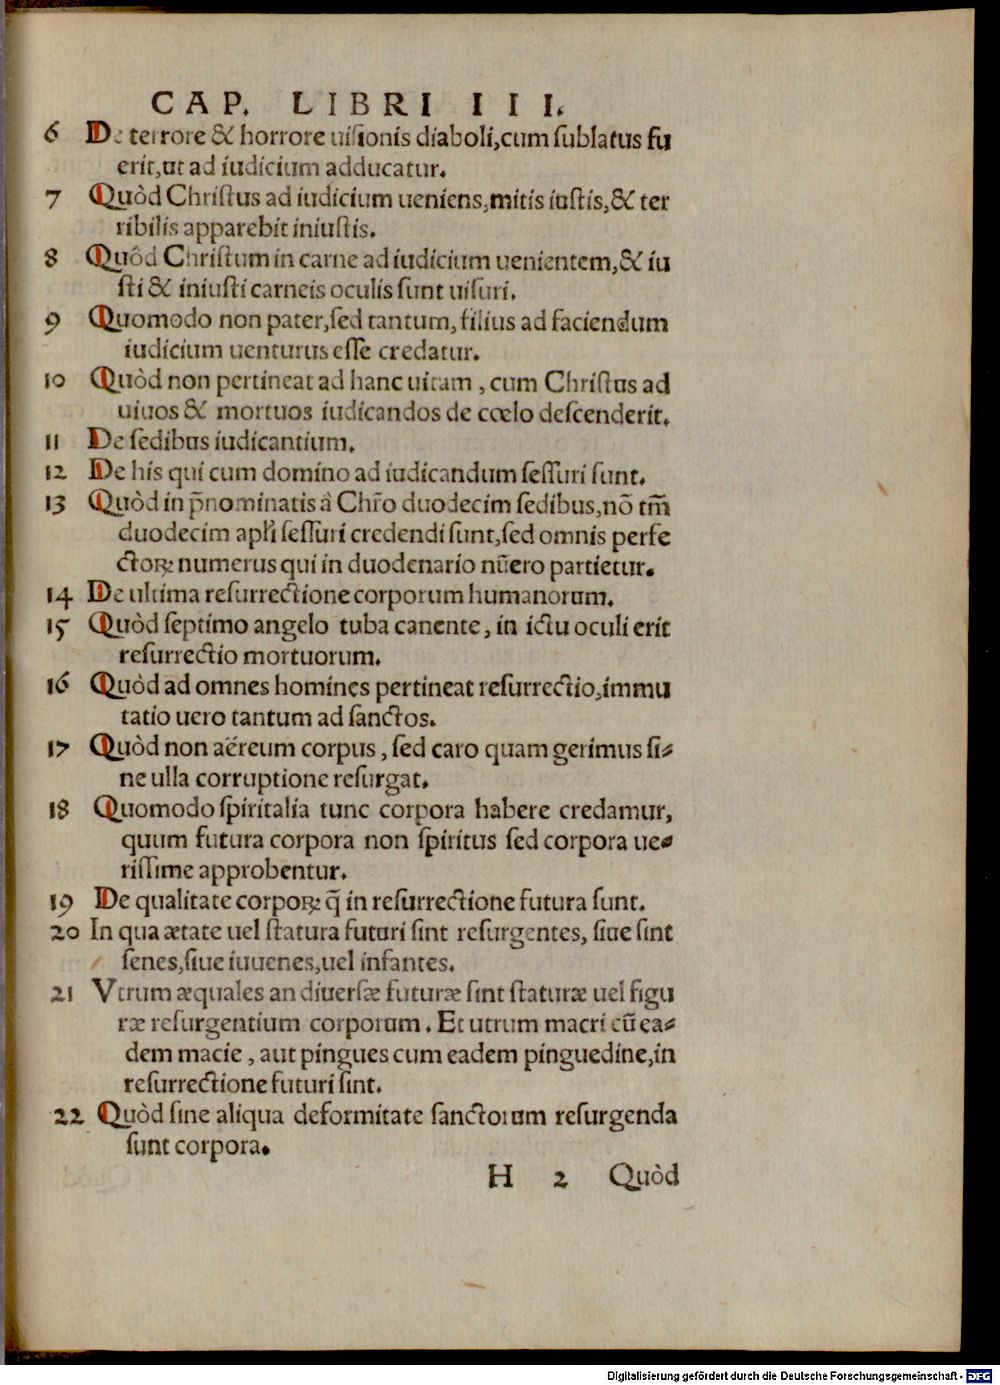 CAP. LIBRI III.
6 De terrore & horrore uisionis diaboli,cum sublatus fu
erit,ut ad iudicium adducatur.
7 Quòd Christus ad iudicium ueniens,mitis iustis,& ter
ribilis apparebit iniustis.
8 Quòd Christum in carne ad iudicium uenientem,& iu
sti & iniusti carneis oculis sunt uisuri.
9 Quomodo non pater,sed tantum, filius ad faciendum
iudicium uenturus esse credatur.
10 Quòd non pertineat ad hanc uitam , cum Christus ad
uiuos & mortuos iudicandos de cœlo descenderit.
11 De sedibus iudicantium.
12 De his qui cum domino ad iudicandum sessuri sunt.
13 Quòd in p̃nominatis à Chr̃o duodecim sedibus,nõ tm̃
duodecim apłi sessuri credendi sunt,sed omnis perfe
ctoꝝ numerus qui in duodenario nũero partietur.
14 De ultima resurrectione corporum humanorum.
15 Quòd septimo angelo tuba canente, in ictu oculi erit
resurrectio mortuorum.
16 Quòd ad omnes homines pertineat resurrectio,immu
tatio uero tantum ad sanctos.
17 Quòd non aëreum corpus , sed caro quam gerimus si-
ne ulla corruptione resurgat.
18 Quomodo spiritalia tunc corpora habere credamur,
quum futura corpora non spiritus sed corpora ue-
rissime approbentur.
19 De qualitate corpoꝝ q̃ in resurrectione futura sunt.
20 In qua ætate uel statura futuri sint resurgentes, siue sint
senes,siue iuuenes,uel infantes.
21 Vtrum æquales an diuersæ futuræ sint staturæ uel figu
ræ resurgentium corporum. Et utrum macri cũ ea-
dem macie , aut pingues cum eadem pinguedine,in
resurrectione futuri sint.
22 Quòd sine aliqua deformitate sanctorum resurgenda
sunt corpora.
H 2 Quòd
Digitalisierung gefördert durch die Deutsche Forschungsgemeinschaft - DFG